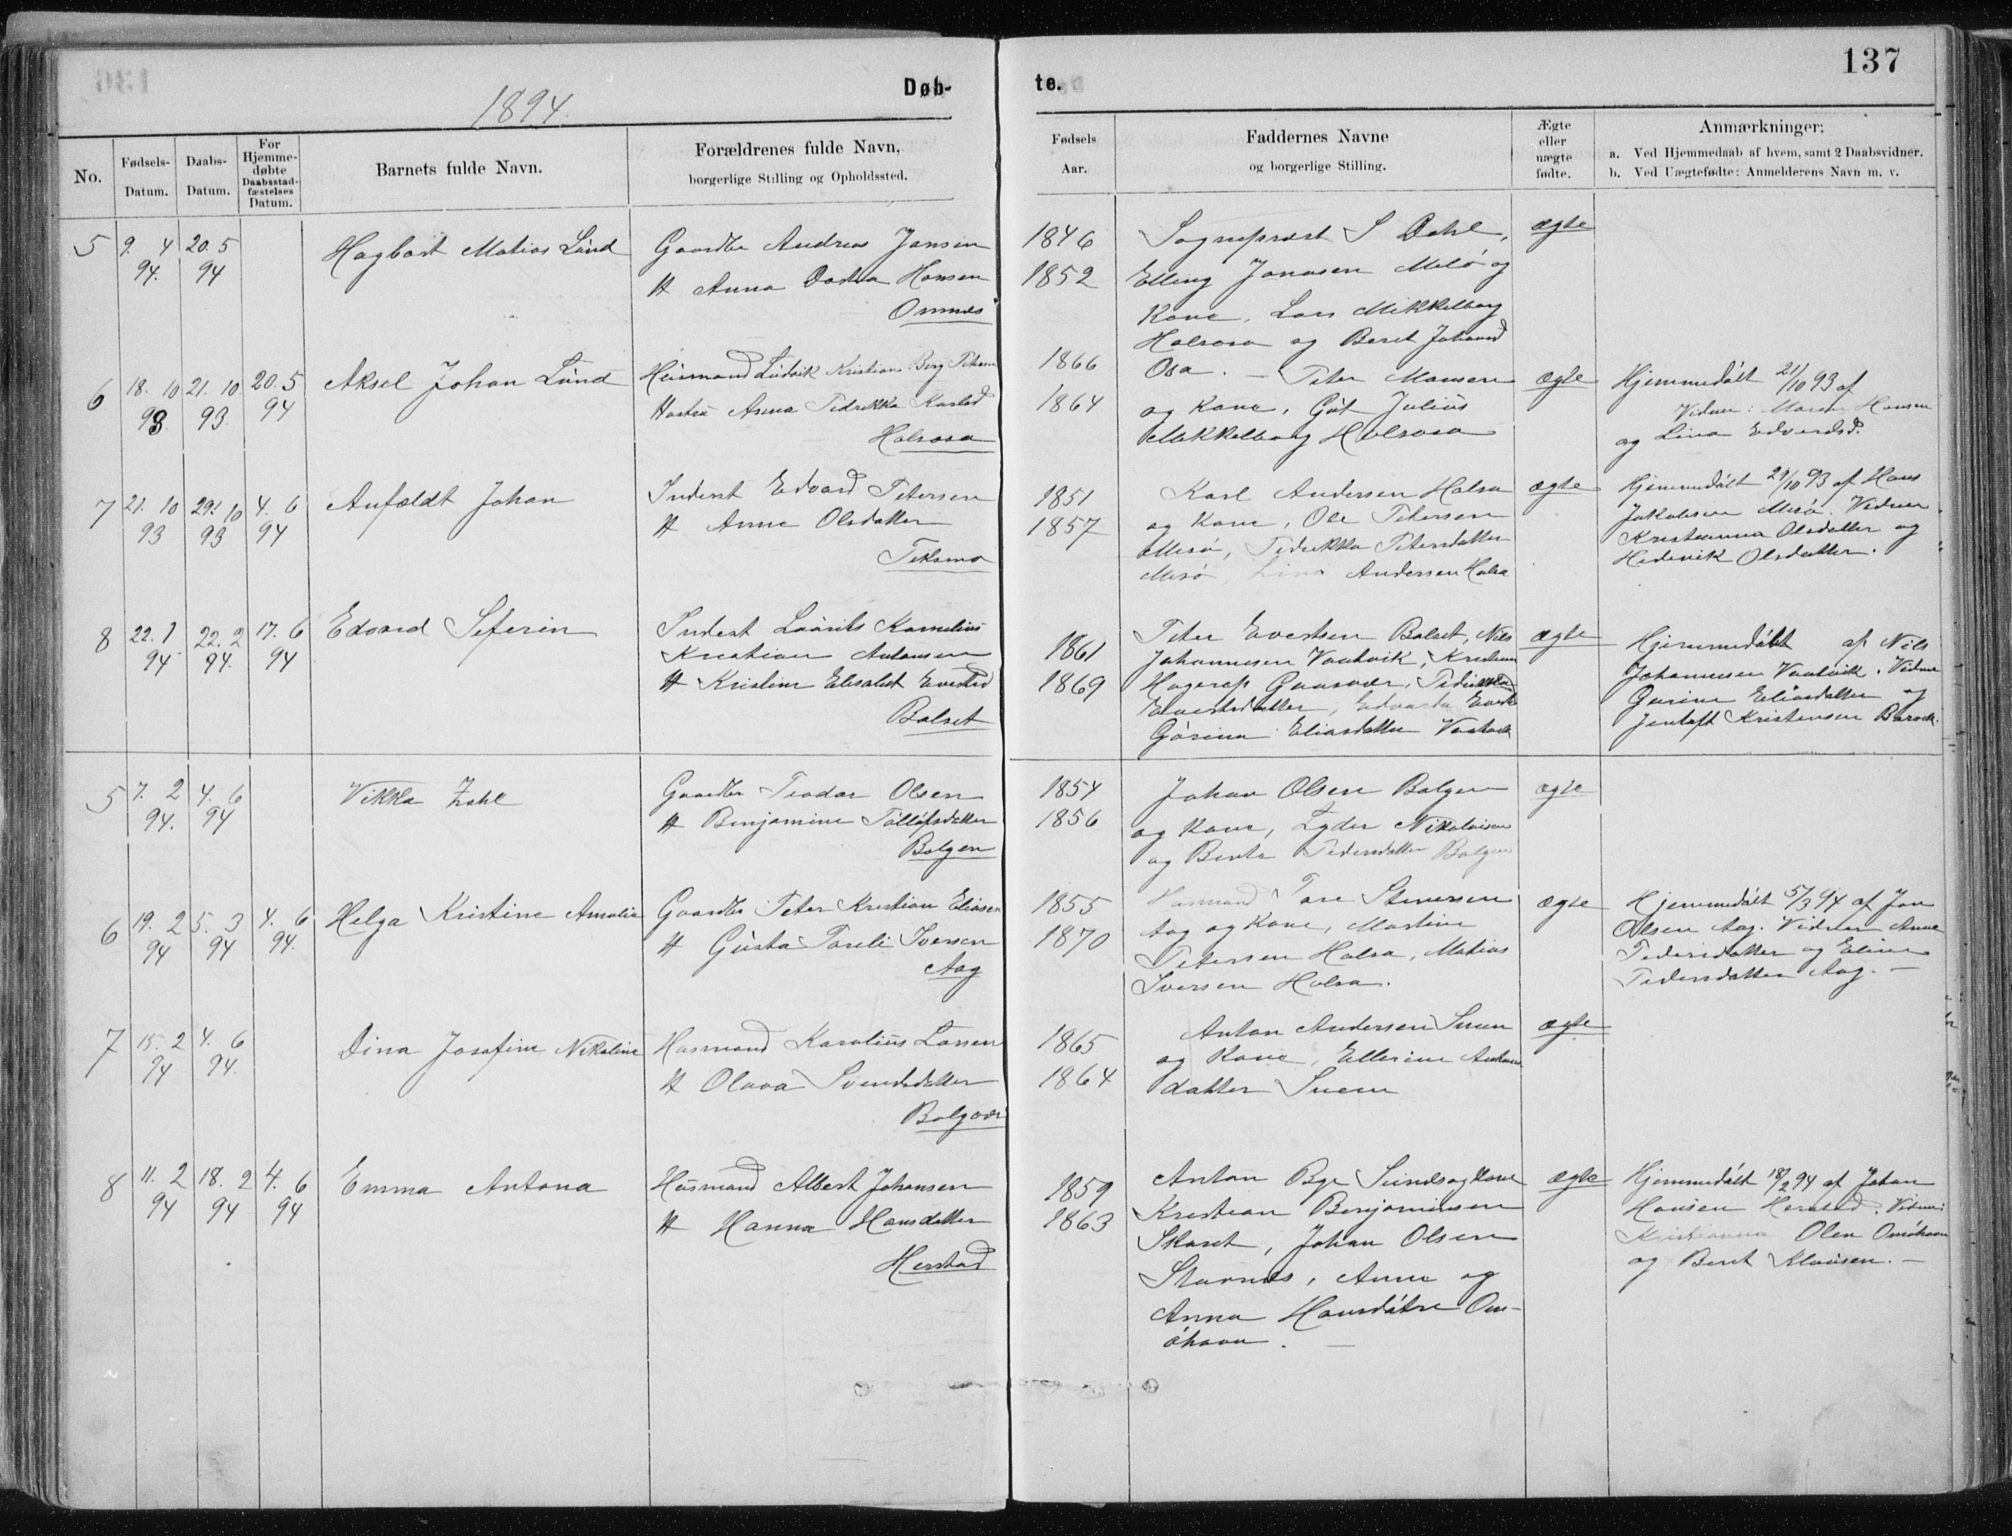 137
1894.
Døb-
te.
No.
Fødsels-
Datum.
Daabs-
Datum.
For
Hjemme-
døbte
Daabsstad-
fæstelses
Datum.
Barnets fulde Navn.
Forældrenes fulde Navn,
borgerlige Stilling og Opholdssted.
Fødsels
Aar.
Faddernes Navne
og borgerlige Stilling.
Ægte
eller
uægte
fødte.
Anmærkninger:
a. Ved Hjemmedaab af hvem, samt 2 Daabsvidner.
b. Ved Uægtefødte: Anmelderens Navn m. v.
5
9. 4
94.
20. 5
94
Hagbart Matias Lund
Gaardbr Andreas Jansen
H Anna Hansen
Omnes
1846
1852
Sogneprest S Dahl,
Elling Jonasen Melø og
Kone, Lars Mikkelborg
Halsosa og Beret
Osa.
ægte
6
18. 10
93
21. 10
93.
20. 5
94
Aksel Johan Lund
Husmand Ludvik Kristian Berg Petersen
Hustru Anna Pedrikka
Halsosa
1866
1864
Peter Mansen
og Kone, Gut Julius
Mikkelborg Halsosa
ægte
Hjemmedøbt 21/10 93 af
Vidner: Hansen
og Lina Edvardsd.
7
21. 10
93
29. 10
93
4. 6
94
Anfeldt Johan
Inderst Edvard Petersen
H Anne Olsdatter
Teksmo
1851
1857
Karl Andersen Halsa
og Kone, Ole Petersen
Mesø, Pedrikka Petersdatter
Mesø Lina Andersen Halsa
ægte
Hjemmedøbt 29/10 93 af Hans
Jakobsen Mesø. Vidner
Kristianna Olsdatter og
Hedevik Olsdatter.
8
22. 1
94.
22. 2
94.
17. 6
94
Edvard Seferin
Inderst Laurits Kornelius
Kristian Antonsen
H Kristine Elisabet
Balset
1861
1869
Peter Evertsen Balset, Nils
Johannesen Vaatvik,
Gaasvær,
Evertsdatter, Edvarda
Gurina Eliasdatter Vaatvik
ægte
Hjemmedøbt af Nils
Johannesen Vaatvik. Vidner
Gurine Eliasdatter og
Jentoft Kristensen
5
7. 2
94.
4. 6
94
Vikka Zahl
Gaardbr Teodor Olsen
H Benjamine Tollefsdatter
Bolgen
1854
1856
Johan Olsen Bolgen
og Kone, Lyder Nikolaisen
og Berta Pedersdatter Bolgen
ægte
6
19. 2
94
5. 3
94
4. 6
94.
Helga Kristine Amalie
Gaardbr Peter Kristian Eliasen
H Gusta Toreli Iversen
Aag
1855
1870
Husmand Tore
Aag og Kone, Martin
Petersen Halsa, Matias
Iversen Halsa.
ægte
Hjemmedøbt 5/3 94 af Jon
Olsen Aag. Vidner Anne
Pedersdatter og Eline
Pedersdatter Aag. —
7
15. 2
94
4. 6
94.
Dina Josefine Nikoline
Husmand Karolius Larsen
H Olava Svendsdatter
Bolgvær
1865
1864
Anton Andersen
og Kone, Ellerine
datter
ægte
8
11. 2
94
18. 2
94
4. 6
94
Emma Antona
Husmand Albert Johansen
H Hanna Hansdatter
Herstad
1859
1863
Anton Bge
Kristian Benjaminsen
Skaret, Johan Olsen
Stavnes, Anne og
Anna Hansdøtre On-
øhavn. —
ægte
Hjemmedøbt 18/2 94 af Johan
Hansen Herstad. Vidner:
Kristianna Olsen Onøhavn
og Beret Klausen. —